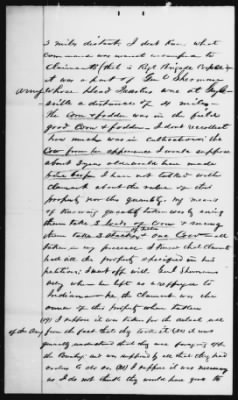 3 miles distant. I dont know what
command was
Claimants (that is Regt Brigade
it was a part of Genl Sherman
army whose Head Quarters was at
ville a distance of 4 miles—
The Corn & fodder was in the field
good Corn & fodder— I dont recollect
how much was in cultivation. The
Cow from her appearance I would suppose
about 3 years old would have made
fine beef. I have not talked with
Claimant about the value of this
property nor the quantity. My means
of knowing quantity taken was by seeing
them take 3 loads of Corn & seeing
them take 3 stacks of fodder & one Cow— all
taken in my presence I know that Claimant
had all the property specified in his
petition; I went off with Genl Shermans
army when he left as a refugee to
Indiana— the Claimant was the
owner of this property when taken
(19) I suppose it was taken for the actual use
of the Army from the fact that they took it (20) it was
generally understood that they were foraging off
the Country, and we supposed by all that they had
orders to do so. (21) I suppose it was necessary
as I do not think they would have gone to